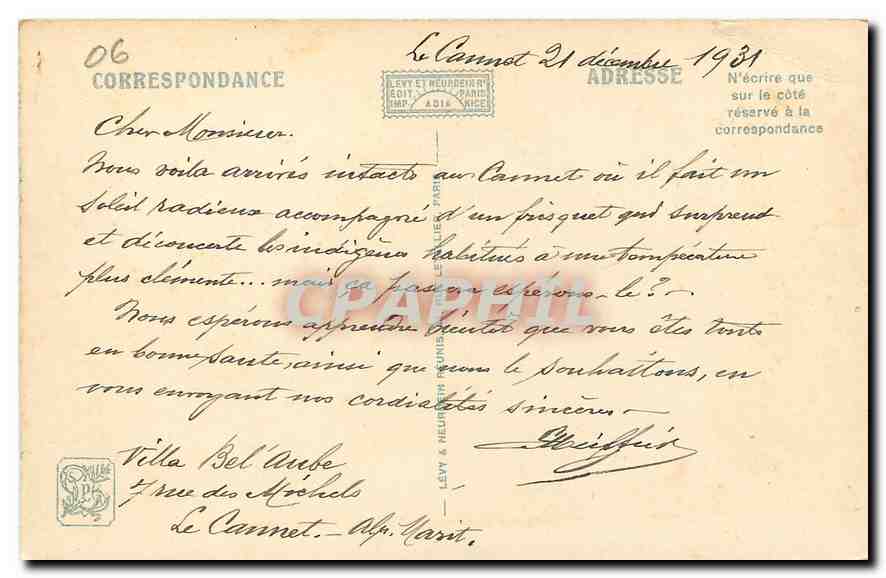 06
Le Cannet 21 décembre 1931
CORRESPONDANCE
LEVY ET NEURDEIN Rs
EDIT. PARIS
IMP. ADIA NICE
ADRESSE
N'écrire que
sur le côté
réservé à la
correspondance
Cher Monsieur.
Nous voila arrivés intacts au Cannet où il fait un
soleil radieux accompagné d'un frisquet qui surprend
et déconcerte les indigènes habitués à une température
plus clémente... mais ça passera espérons-le? -
Nous espérons apprendre bientôt que vous êtes touts
en bonne santé, ainsi que nous le souhaitons, en
vous envoyant nos cordialités sincères -
Villa Bel'Aube
7 rue des Michels
Le Cannet. - Alp. Marit.
LÉVY & NEURDEIN RÉUNIS, RUE LETELLIER, PARIS
CPAPHIL